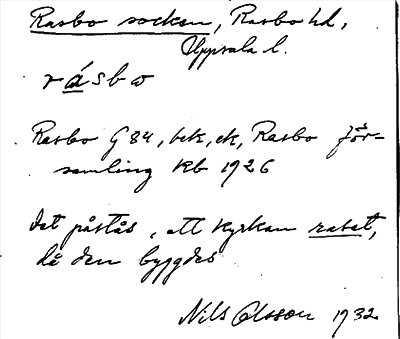 Rasbo socken, Rasbo hd,
Uppsala l.
råsbω
Rasbo G 84, bek, ek, Rasbo för-
samling kb 1926
Det påstås, att kyrkan rasat,
då den byggdes
Nils Olsson 1932